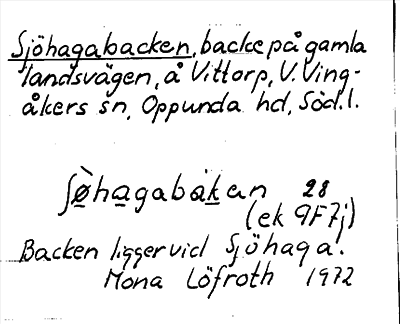 Sjöhagabacken, backe på gamla
landsvägen, å Vittorp, V. Ving-
åkers sn, Oppunda hd, Söd. l.
ʃø̀hagabàkan 28
(ek 9F7j)
Backen ligger vid Sjöhaga.
Mona Löfroth 1972